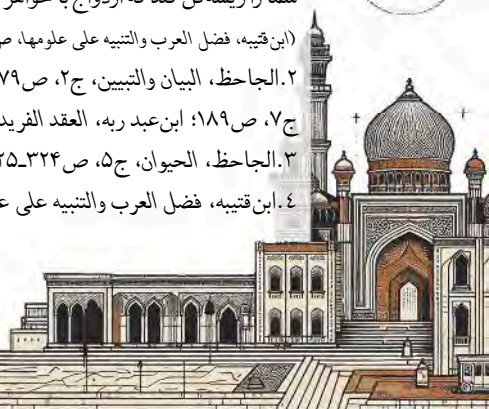 شما را ریشه‌کن کند که ازدواج با خواهر
(ابن‌قتیبه، فضل العرب والتنبیه علی علومها، ص
۲.الجاحظ، البیان والتبیین، ج۲، ص۷۹
ج۷، ص۱۸۹؛ ابن‌عبد ربه، العقد الفرید
۳.الجاحظ، الحیوان، ج۵، ص۳۲۴ـ۲۵
٤.ابن‌قتیبه، فضل العرب والتنبیه علی